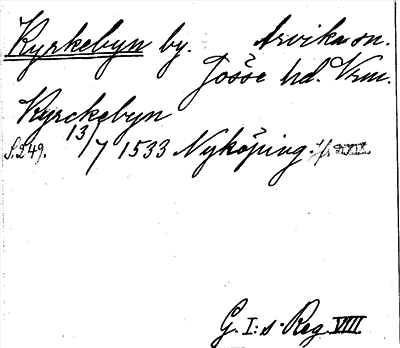 Kyrkebyn by. Arvika sn.
Jösse hd. Vrm.
Kyrckebyn
S. 249. 13/7 1533 Nyköping.
G. I:s Reg. VIII